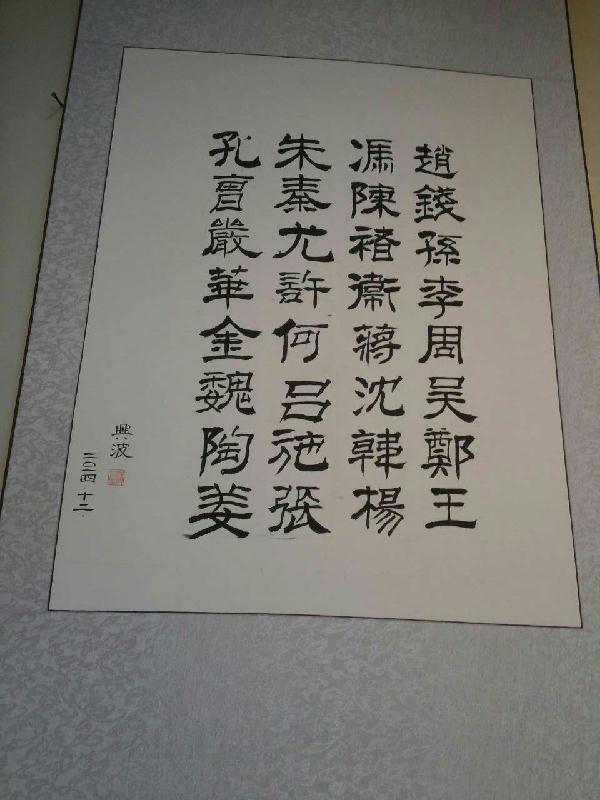 趙錢孫李周吴鄭王
馮陳褚衛蔣沈韓楊
朱秦尤許何吕施張
孔曹嚴華金魏陶姜
興波
二〇一四 十二